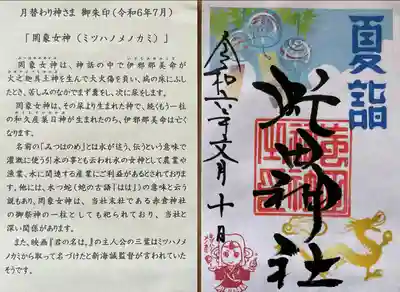 月替わり神さま 御朱印(令和6年7月)
「罔象女神(ミツハノメノカミ)」
罔象女神は、神話の中で伊邪那美命が
火之迦具土神を生んで大火傷を負い、病の床にふし
たとき、苦しみのなかでまず糞をし、次に尿をします。
罔象女神は、その尿より生まれた神で、続くもう一柱
の和久産巣日神が生まれたのち、伊邪那美命は亡く
なります。
名前の「みつはのめ」とは水が這う、伝うという意味で
灌漑に使う引水の事とも云われ水の女神として農業や
漁業、水に関連する産業にご利益があるとされておりま
す。他には、水つ蛇(蛇の古語「はは」)の意味と云う
説もあり、罔象女神は、当社末社である赤倉神社
の御祭神の一柱としても祀られており、当社と
深い関係があります。
また、映画『君の名は。』の主人公の三葉はミツハノメ
ノカミから取って名づけたと新海誠監督が言われていた
そうです。
夏詣
蛇田神社
令和六年文月十日